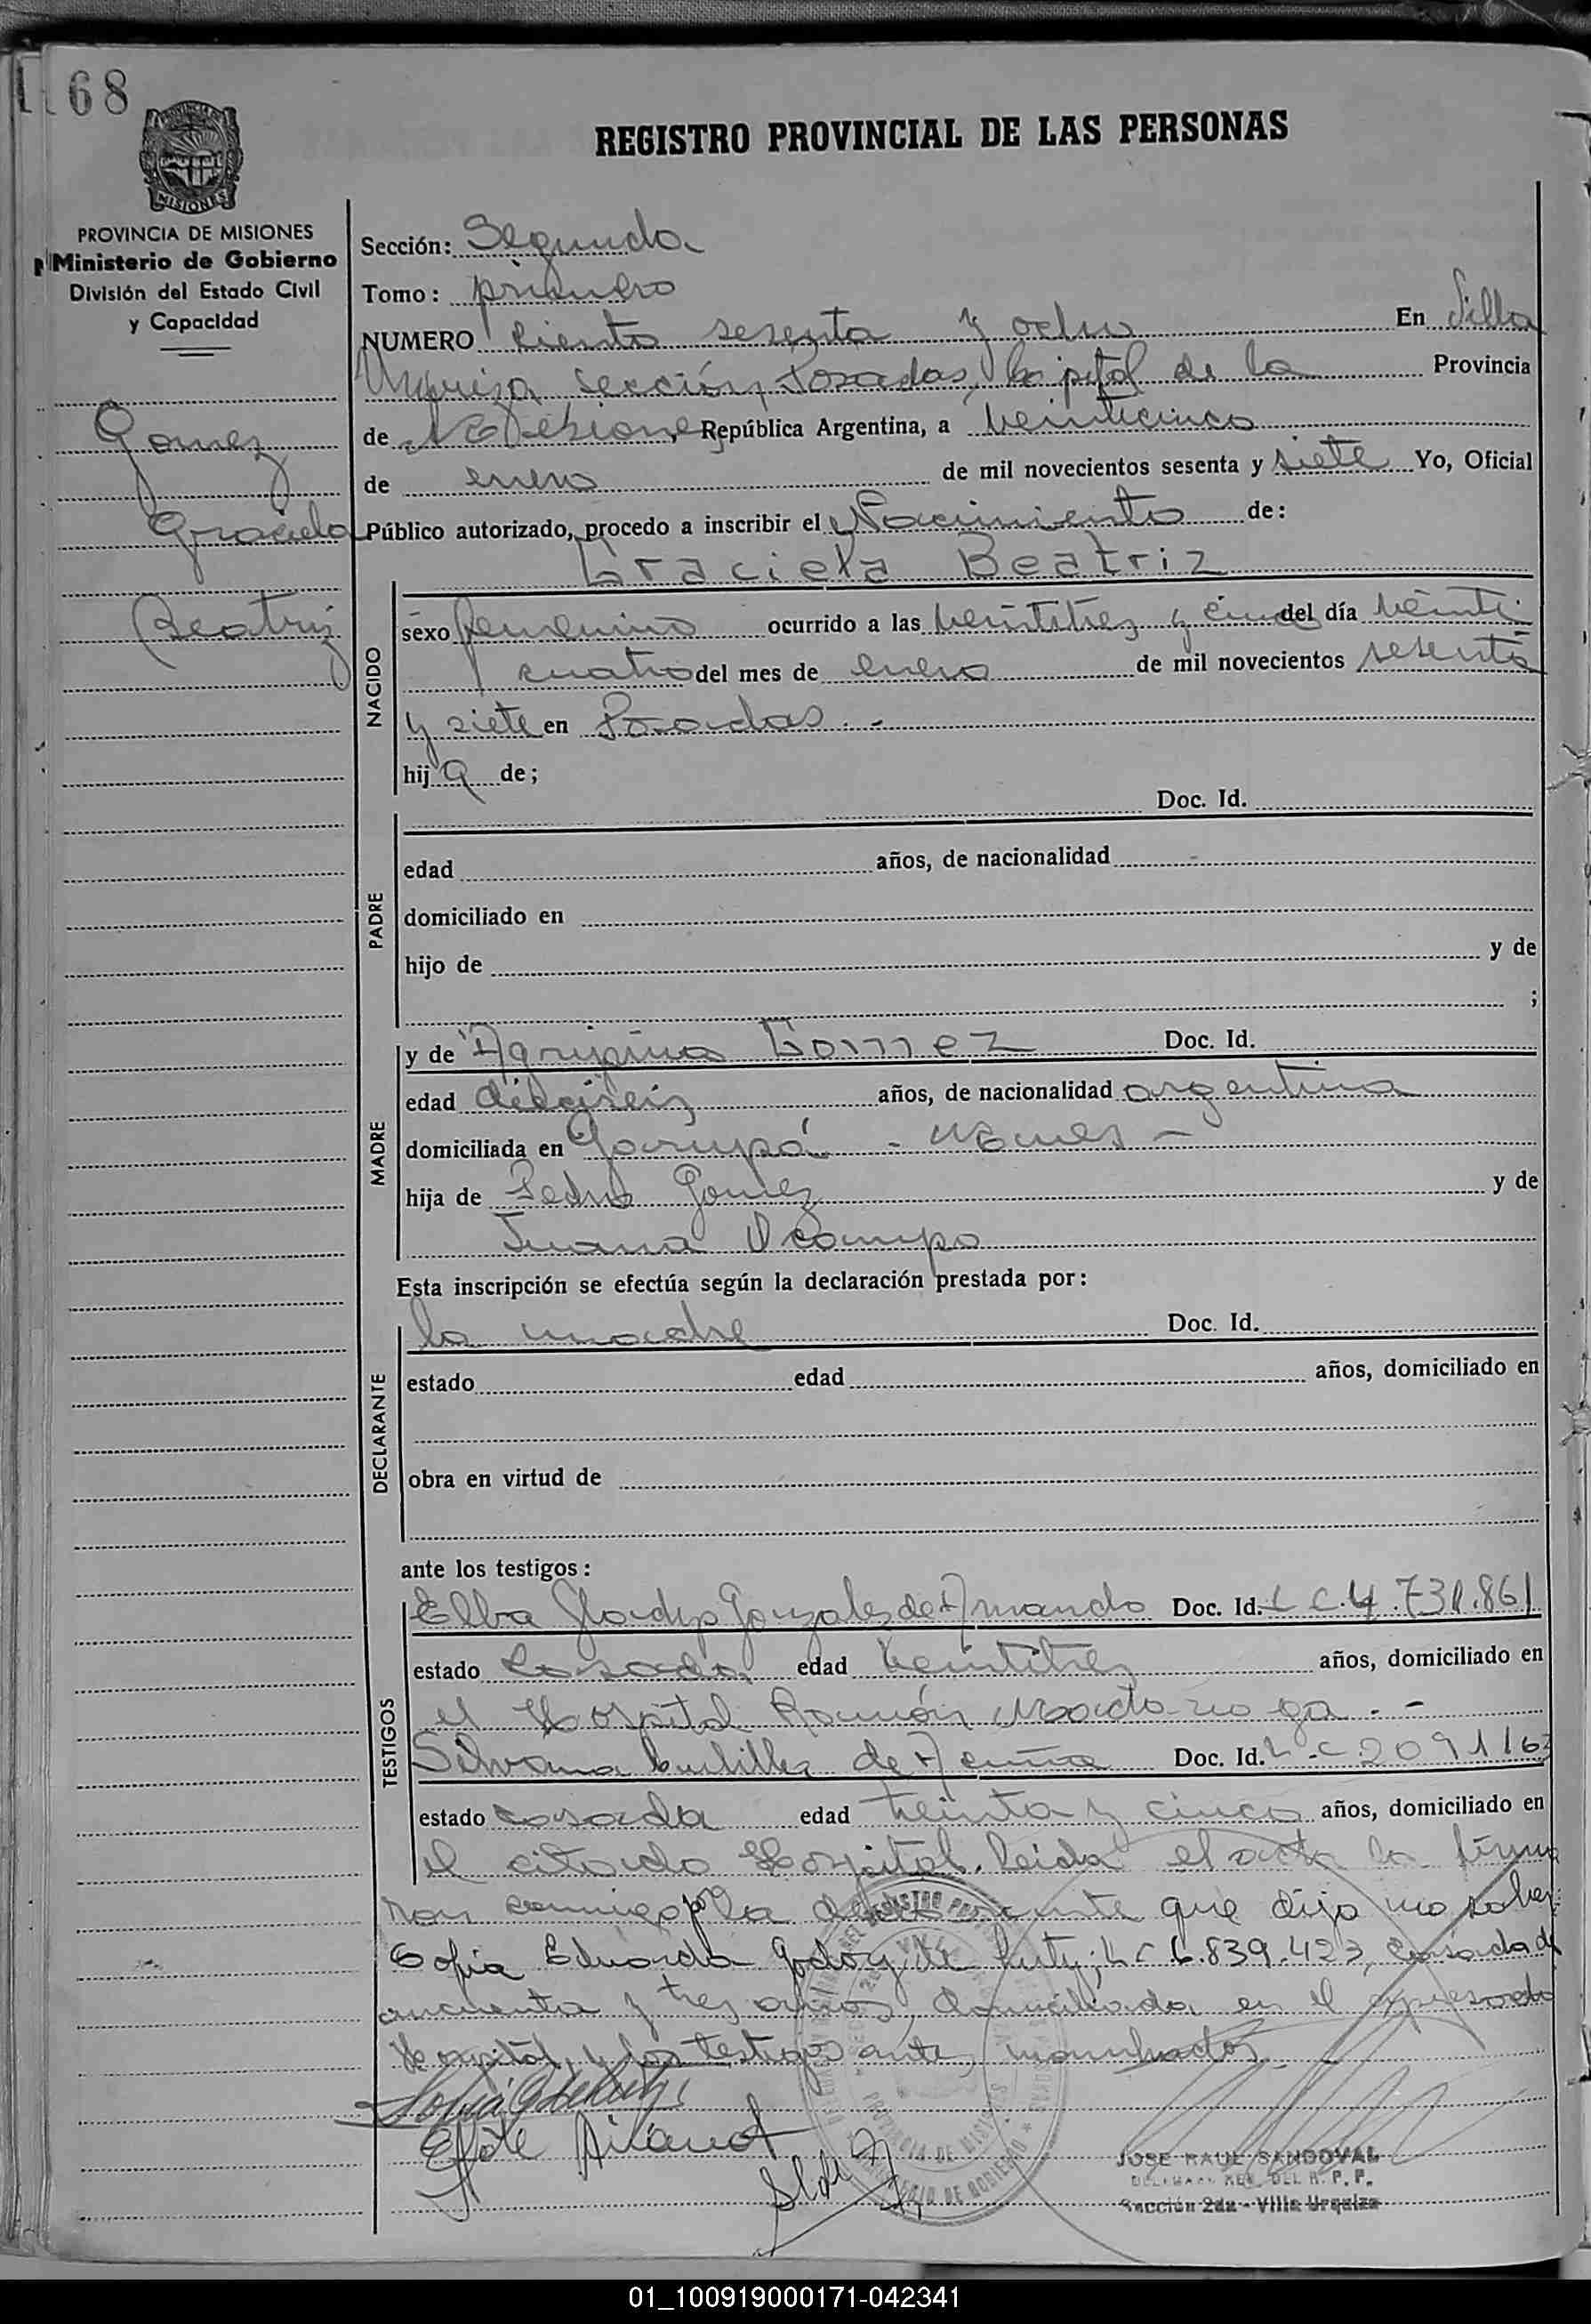 168
REGISTRO PROVINCIAL DE LAS PERSONAS
MISIONES
PROVINCIA DE MISIONES
Ministerio de Gobierno
División del Estado Civil
y Capacidad
Gomez
Graciela
Beatriz
Sección: Segunda
Tomo: primero
NUMERO Ciento sesenta y ocho En Villa
Urquiza sección Posadas, Capital de la Provincia
de Misiones República Argentina, a veinticinco
de enero de mil novecientos sesenta y siete Yo, Oficial
Público autorizado, procedo a inscribir el Nacimiento de:
Graciela Beatriz
NACIDO
sexo femenino ocurrido a las veintitres y cinco del día veinti
cuatro del mes de enero de mil novecientos sesenta
y siete en Posadas.-
hija de;
PADRE
Doc. Id.
edad años, de nacionalidad
domiciliado en
hijo de y de
;
MADRE
y de Agripina Gomez Doc. Id.
edad dieciseis años, de nacionalidad argentina
domiciliada en Garupá - Mnes -
hija de Pedro Gomez y de
Juana Ocampo
Esta inscripción se efectúa según la declaración prestada por:
DECLARANTE
la madre Doc. Id.
estado edad años, domiciliado en
obra en virtud de
ante los testigos:
TESTIGOS
Elba Gladys Gonzalez de Armando Doc. Id. L C. 4.731.861
estado casada edad veintitres años, domiciliado en
el Hospital Ramón Madariaga.-
Silvana de Acuña Doc. Id. L-C 2091163
estado casada edad treinta y cinco años, domiciliado en
el citado Hospital. Leida el acta la firma
ron conmigo p/ la declarante que dijo no saber
Sofia Eduarda Godoy de L C 6.839.423, casada de
cincuenta y tres años, domiciliada en el expresado
Hospital, y los testigos ante mombrados
JOSE RAUL SANDOVAL
DEL R. P. P.
Sección 2da - Villa Urquiza
01_100919000171-042341